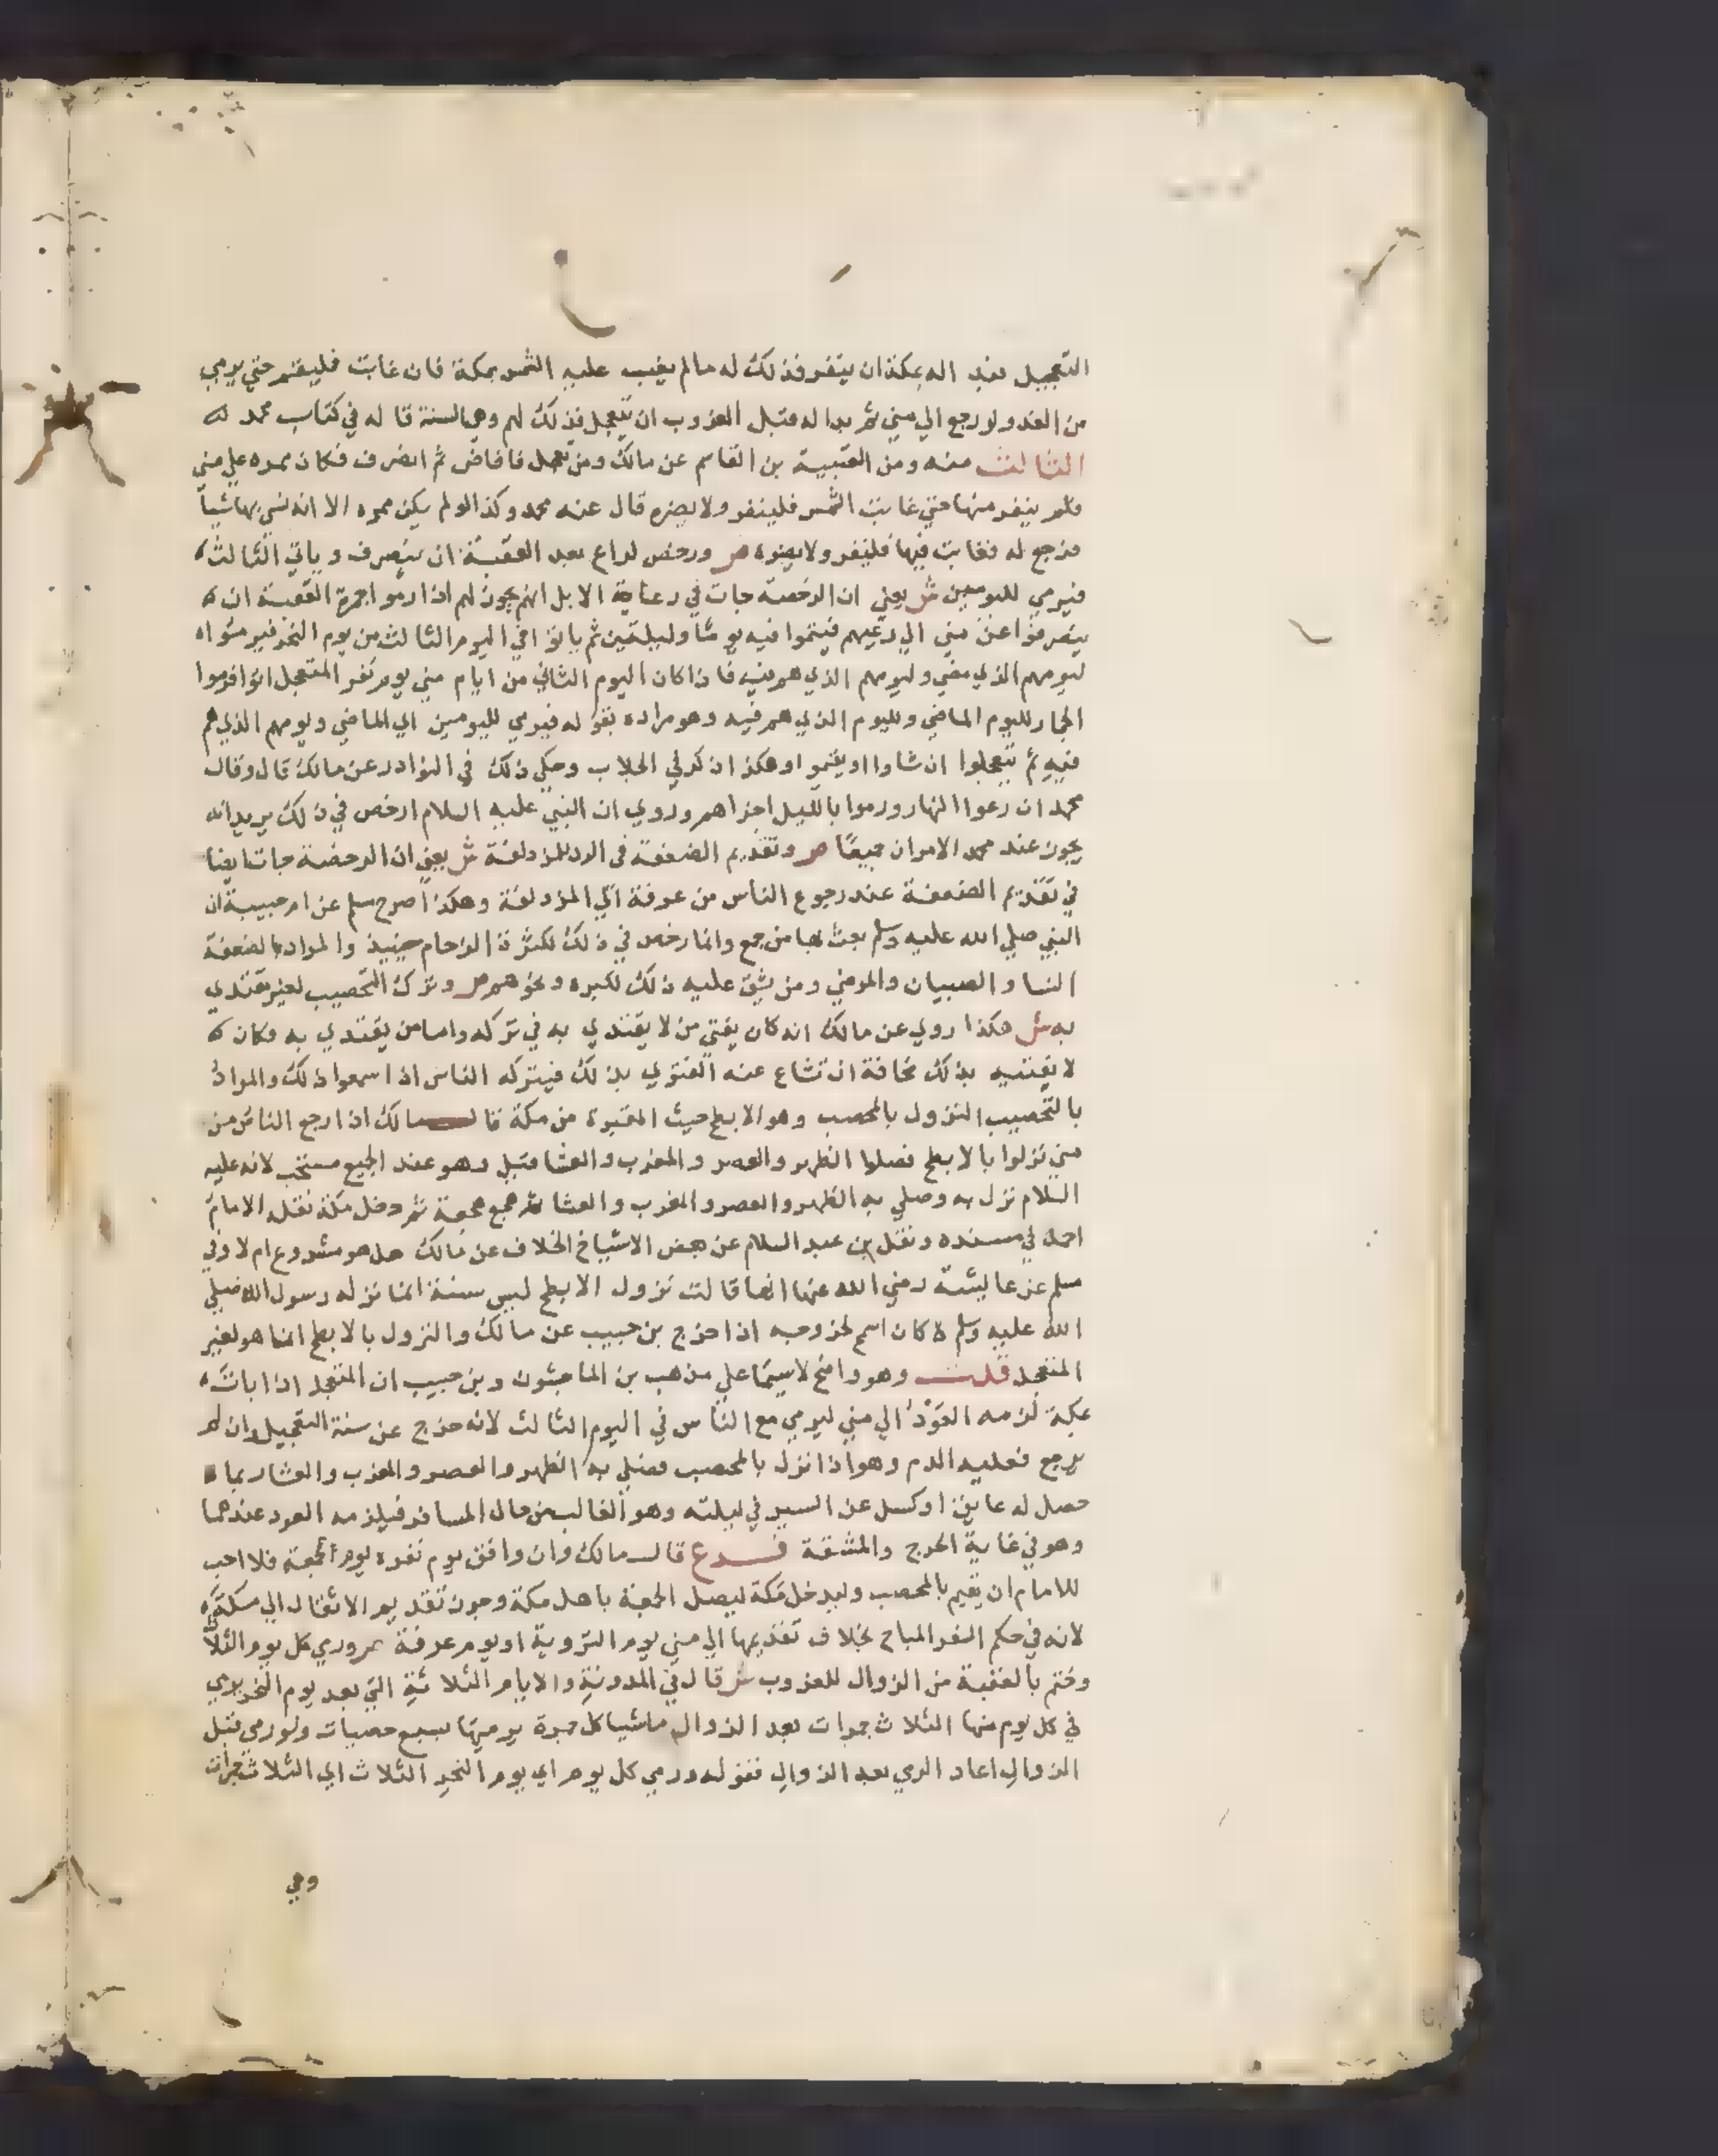 التعجيل فبدا له بمكة ان ينفر فذلك له ما لم يغب عليه الشمس بمكة فان غابت فليقم حتي يرمي
من الغد ولو رجع الي مني ثم بدا له قبل الغروب ان يتعجل فذلك لهم وهي السنة قاله في كتاب محمد
الثالث منه ومن العتبية بن القاسم عن مالك ومن تعجل فافاض ثم انصرف فكان ممره علي مني
فلم ينفر منها حتي غابت الشمس فلينفر ولا يضره قال عنه محمد وكذا لو لم يكن ممره الا انه نسي بها شياً
فرجع له فغابت فيها فلينفر ولا يضره ص ورخص لراع بعد العقبة ان ينصرف وياتي الثالث
فيرمي لليومين ش يعني ان الرخصة جات في رعاية الابل انهم يجوز لهم اذا رموا جمرة العقبة ان
ينصرفوا عن مني الي رعيهم فيقموا فيه يوما وليلتين ثم ياتوا في اليوم الثالث من يوم النحر فيرموا
ليومهم الذي مضي وليومهم الذي هم فيه فاذا كان اليوم الثاني من ايام مني يوم نفر المتعجل اتوا فرموا
الجمار لليوم الماضي ولليوم الذي هم فيه وهو مراده بقوله فيرمي لليومين اي الماضي ويومهم الذي هم
فيه ثم يتعجلوا ان شاوا او يقيموا وهكذا ذكر في الجلاب وحكي ذلك في النوادر عن مالك قال وقال
محمد ان رعوا النهار ورموا بالليل اجزاهم وروي ان النبي عليه السلام ارخص في ذلك يريد انه
يجوز عند محمد الامران جميعا ص وتقديم الضعفة في الرد للمزدلفة ش يعني ان الرخصة جات ايضا
في تقديم الضعفة عند رجوع الناس من عرفة الي المزدلفة وهكذا صرح مسلم عن ام حبيبة ان
النبي صلي الله عليه وسلم بعث بها من جمع وانما رخص في ذلك لكثرة الزحام حينيذ والمراد بالضعفة
النسا والصبيان والمرضي ومن يشق عليه ذلك لكبره ونحوهم ص وترك التحصيب لغير مقتدي
به ش هكذا روي عن مالك انه كان يفتي من لا يقتدي به في تركه واما من يقتدي به فكان
لا يفتيه بذلك مخافة ان تشاع عنه الفتوي بذلك فيتركه الناس اذا سمعوا ذلك والمراد
بالتحصيب النزول بالمحصب وهو الابطح حيث المقبرة من مكة قال مالك اذا رجع الناس من
مني نزلوا بالابطح فصلوا الظهر والعصر والمغرب والعشا قبل وهو عند الجميع مستحب لانه عليه
السلام نزل به وصلي به الظهر والعصر والمغرب والعشا ثم هجع هجعة ثم دخل مكة نقله الامام
احمد في مسنده ونقل بن عبد السلام عن بعض الاشياخ الخلاف عن مالك هل هو مشروع ام لا وفي
مسلم عن عايشة رضي الله عنها انها قالت نزول الابطح ليس سنة انما نزله رسول الله صلي
الله عليه وسلم لانه كان اسمح لخروجه اذا خرج بن حبيب عن مالك والنزول بالابطح انما هو لغير
المتعجل قلت وهو واضح لا سيما علي مذهب بن الماجشون وبن حبيب ان المتعجل اذا بات
بمكة لزمه العود الي مني ليرمي مع الناس في اليوم الثالث لانه خرج عن سنة التعجيل وان لم
يرجع فعليه الدم وهو اذا نزل بالمحصب فصلي به الظهر والعصر والمغرب والعشا ربما
حصل له عايق او كسل عن السير في ليلته وهو الغالب من حال المسافر فيلزمه العود عندهما
وهو في غاية الحرج والمشقة فرع قال مالك وان وافق يوم نفره يوم الجمعة فلا احب
للامام ان يقيم بالمحصب وليدخل مكة ليصل الجمعة باهل مكة وجوز تقديم الاثقال الي مكة
لانه في حكم النفر المباح بخلاف تقديمها الي مني يوم التروية او يوم عرفة ص ورمي كل يوم الثلاث
وختم بالعقبة من الزوال للغروب ش قال في المدونة والايام الثلاثة التي بعد يوم النحر يرمي
في كل يوم منها الثلاث جمرات بعد الزوال ماشيا كل جمرة يرميها بسبع حصيات ولو رمي قبل
الزوال اعاد الرمي بعد الزوال فقوله ورمي كل يوم اي يوم النحر الثلاث اي الثلاث جمرات
وهي